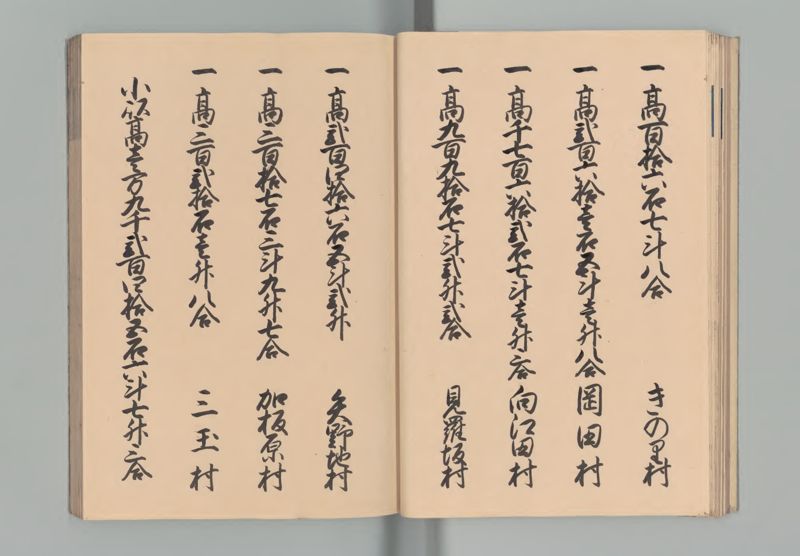 一高百拾六石七斗八合 きのゑ村
一高弐百六拾壱石五斗壱升八合 岡田村
一高千七百六拾弐石七斗壱升三合 向江田村
一高九百九拾石七斗弐升弐合 見羅坂村
一高弐百四拾六石五斗弐升 矢野地村
一高三百拾七石三斗九升七合 加板原村
一高三百弐拾石壱升八合 三玉村
小以高壱万九千弐百四拾五石六斗七升三合